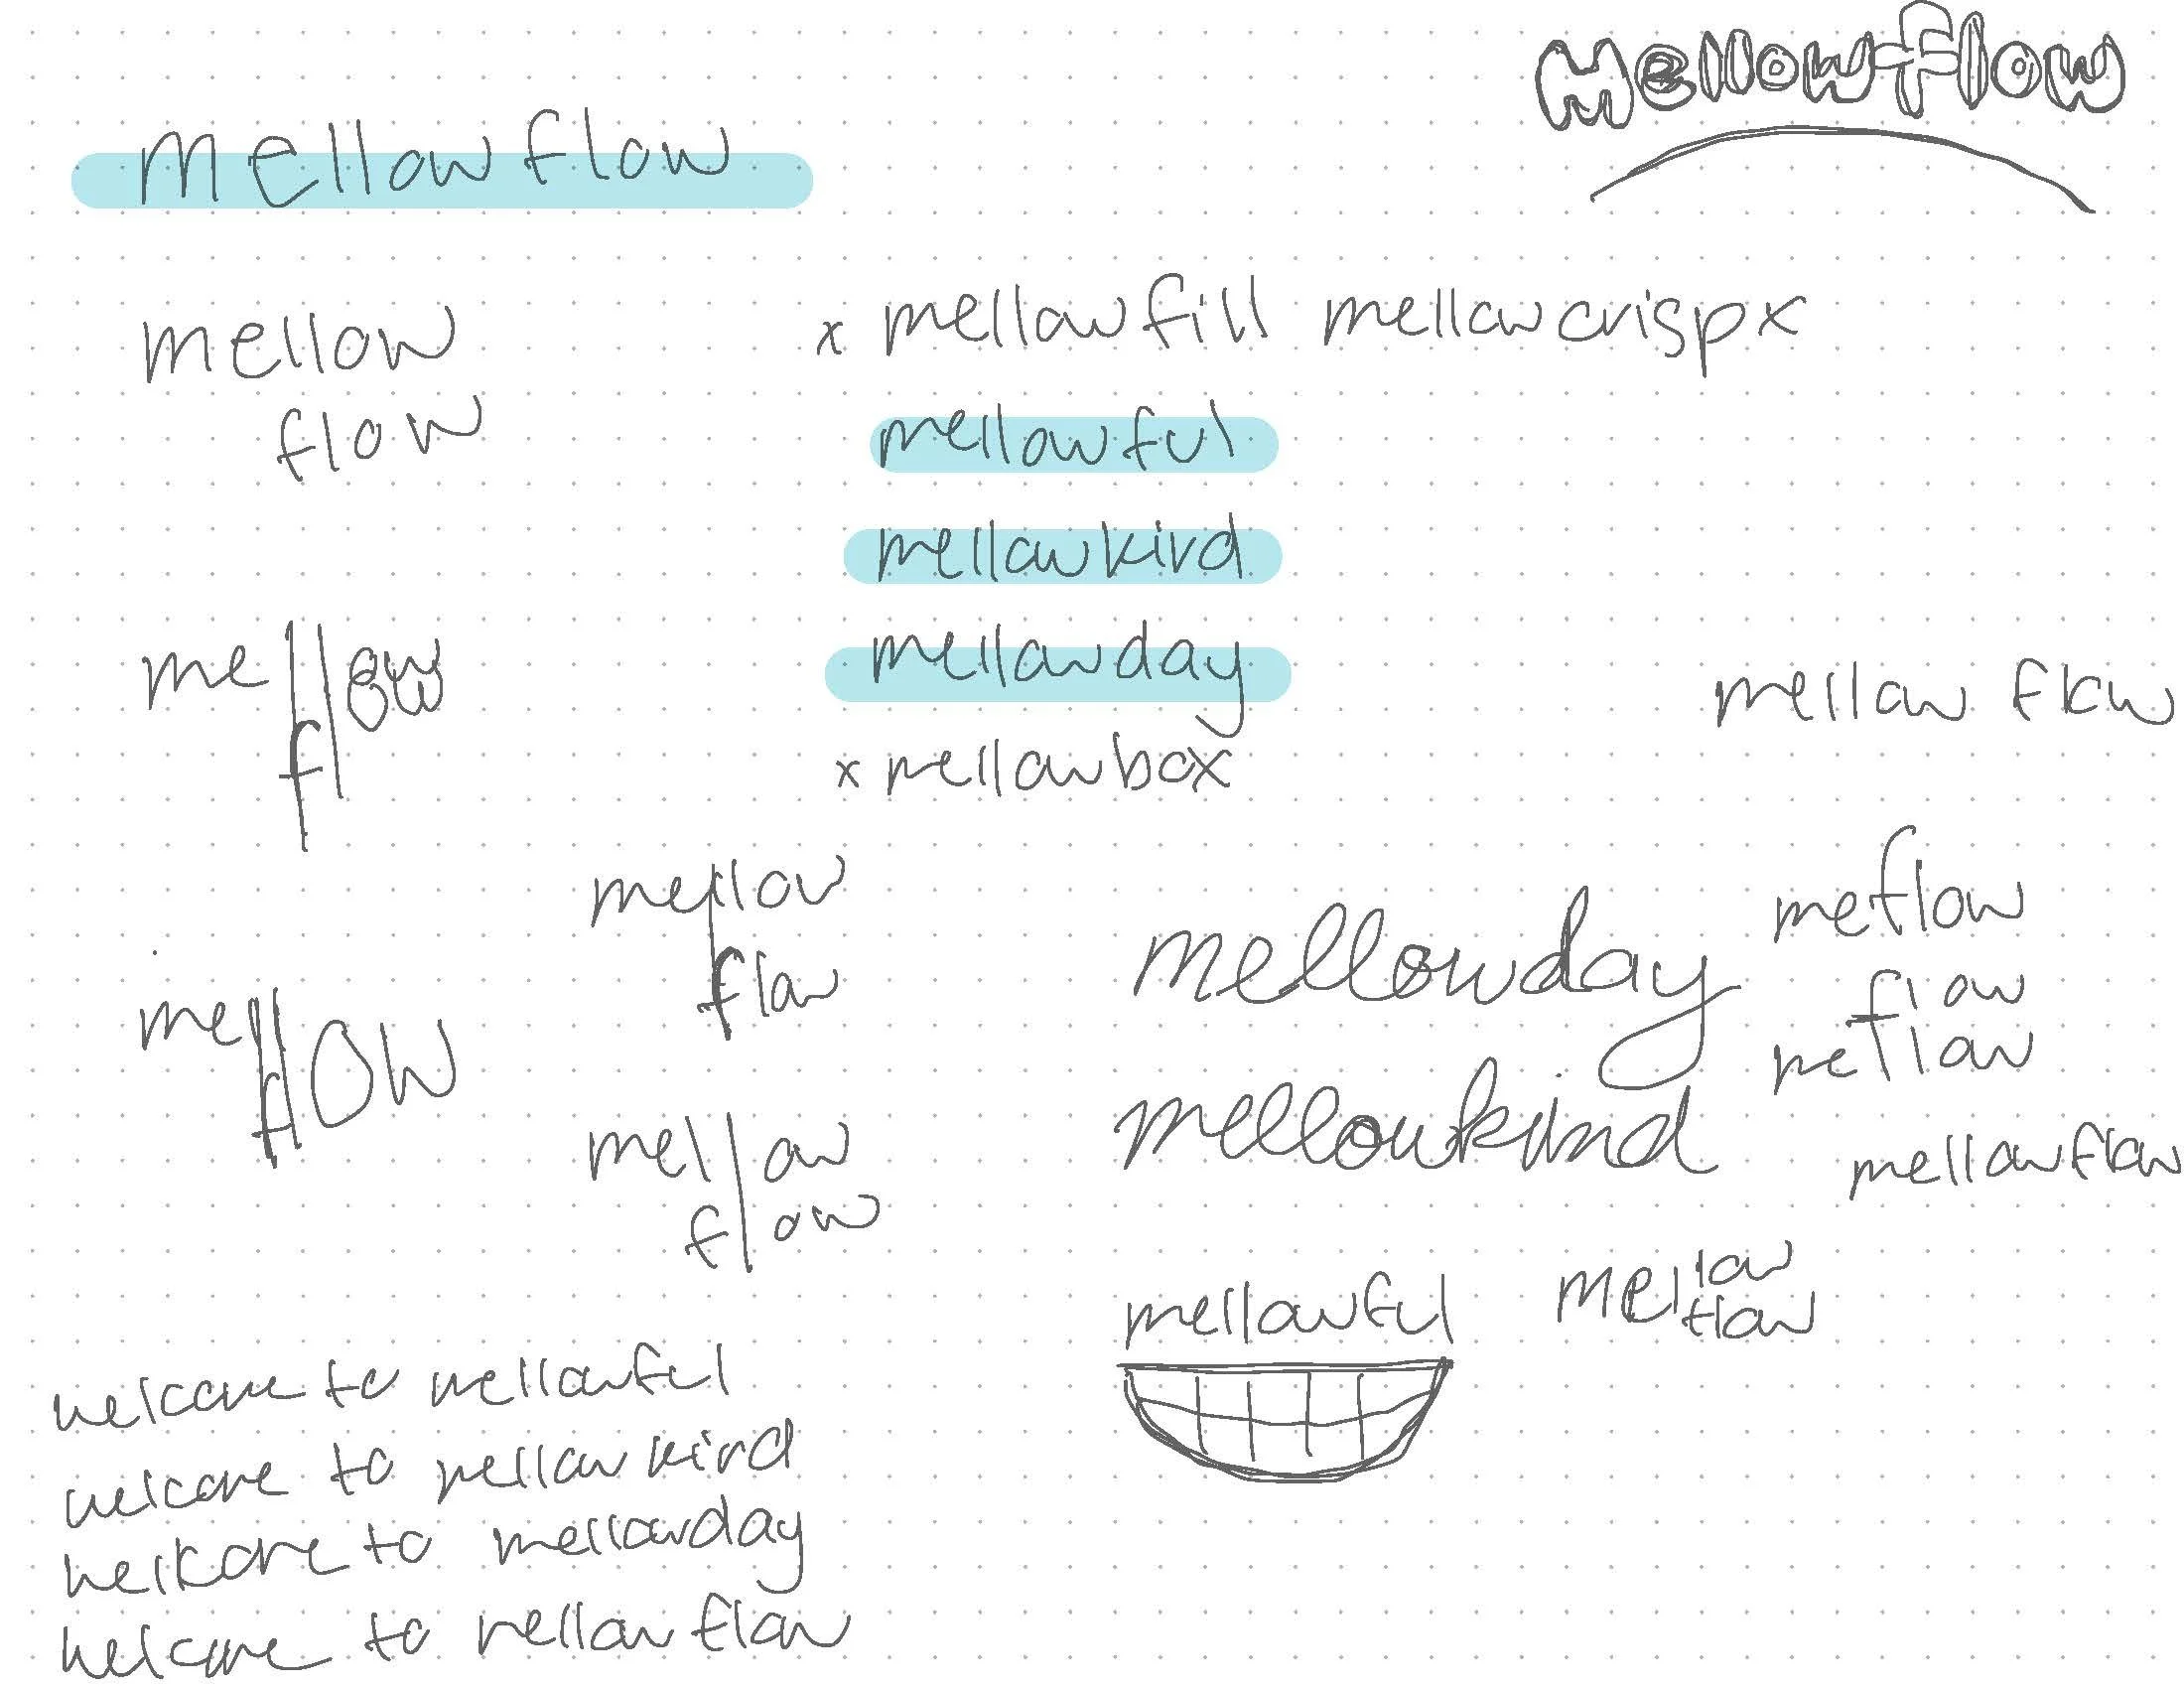 Mellowflow
mellowflow
mellow
flow
x mellowfill mellowcrisp x
mellowful
mellowkind
mellowday
x mellowbox
mellow
flow
mellow flow
mellow
flow
mell
flow
mellow
flow
mellowday
mellowkind
meflow
flow
meflow
mellowflow
mellowful
mellow
flow
welcome to mellowful
welcome to mellowkind
welcome to mellowday
welcome to mellowflow